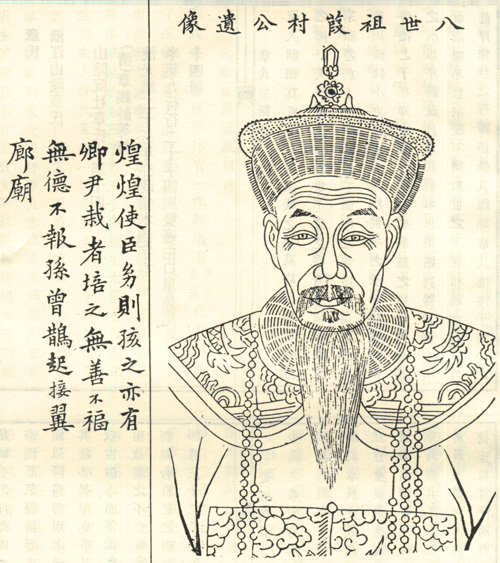 八世祖葭村公遺像
煌煌使臣幼則孩之亦有
卿尹栽者培之無善不福
無德不報孫曾鵲起接翼
廊廟